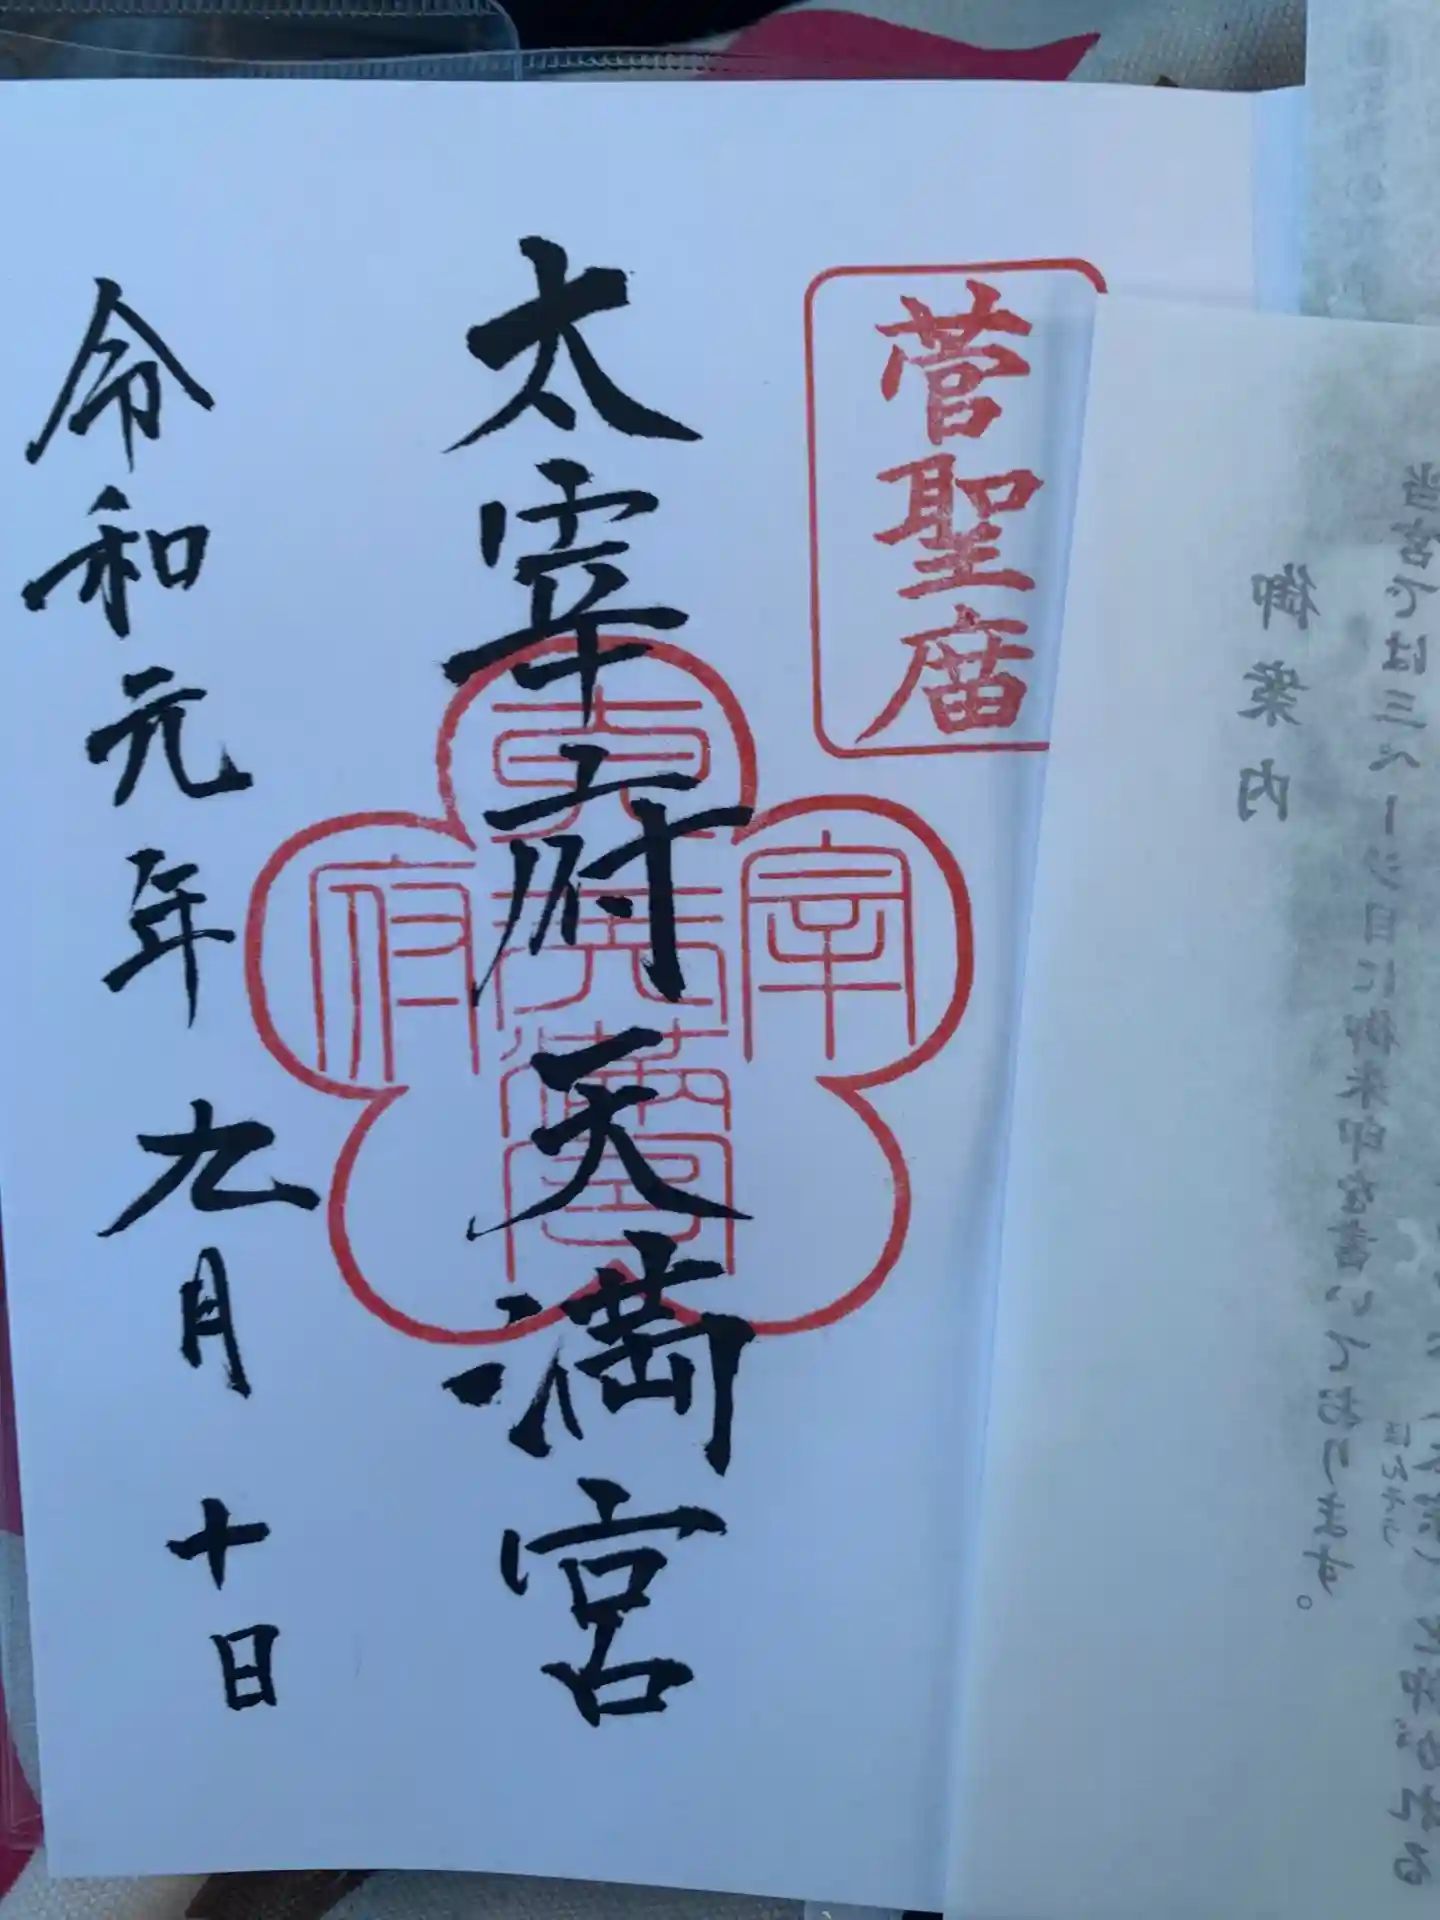 菅聖庿
太宰府天満宮
令和元年九月十日
宰
府
御案内
当宮では三ページ目に御朱印を書いております。